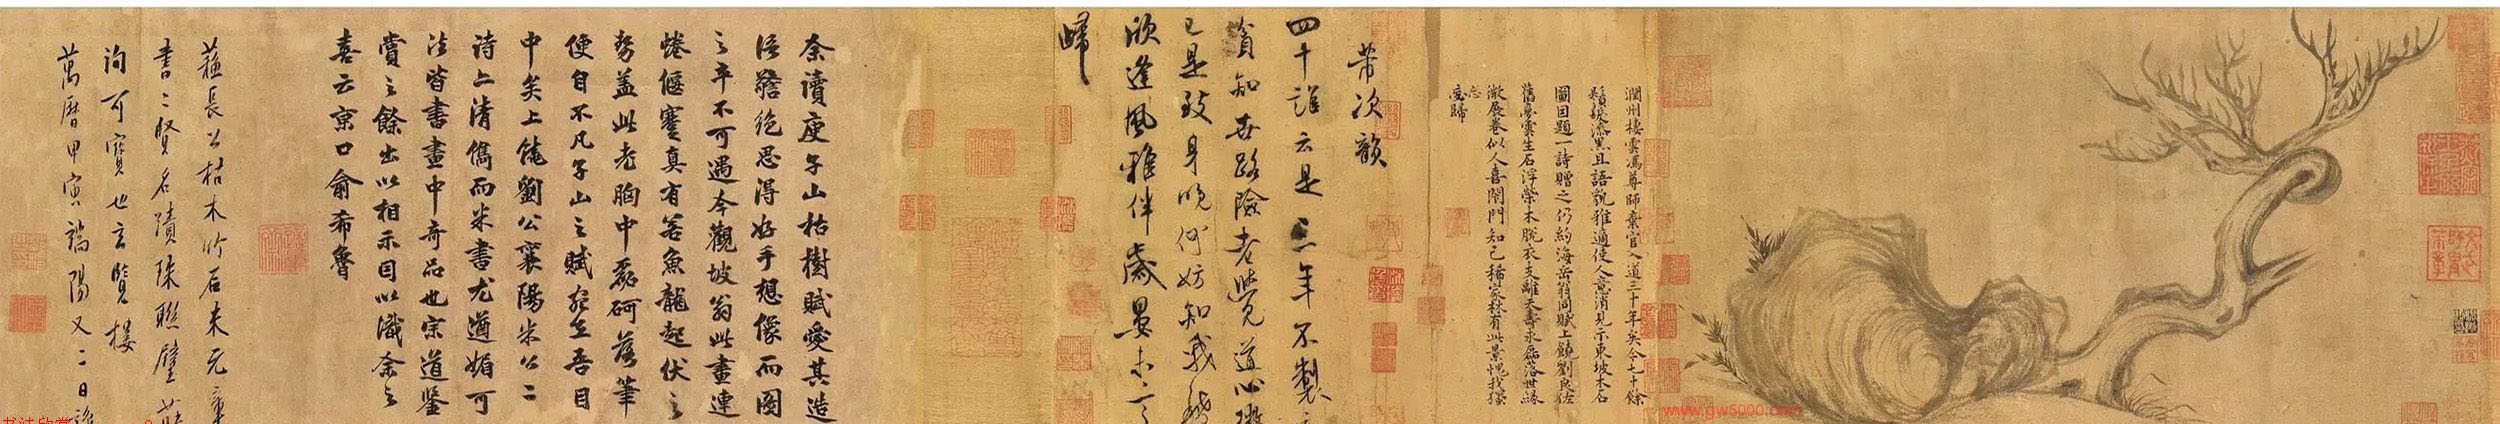 潤州棲雲馮尊師棄官入道三十年矣今七十餘
鬚髮漆黑且語貌雅適使人意消見示東坡木石
圖因題一詩贈之仍約海岳翁同賦上饒劉良佐
舊夢雲生石浮榮木脫衣支離天壽永磊落世緣
微展卷似人喜閉門知己稀家林有此景愧我獨
忘
忘歸
芾次韻
四十誰云是三年不製
貧知世路險老覺道心
已是致身晚何妨知我
欣逢風雅伴歲晏未言
歸
余讀庾子山枯樹賦愛其造
語警絕思得好手想像而圖
之卒不可遇今觀坡翁此畫連
蜷偃蹇真有若魚龍起伏之
勢蓋此老胸中磊砢落筆
便自不凡子山之賦宛在吾目
中矣上饒劉公襄陽米公二
詩上清儁而米書尤遒媚可
法皆書畫中奇品也宗道鑒
賞之餘出以相示因以識余之
喜云京口俞希魯
蘇長公枯木竹石米元章
書二賢名蹟珠聯璧
詢可寶也玄覽樓
萬曆甲寅端陽又二日
www.gw5000.com
书法欣赏